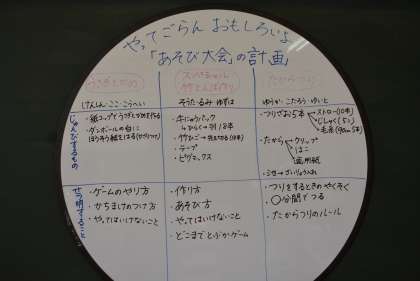 やってごらん おもしろいよ
「あそび大会」の計画
うさぎとかめ
スペシャル
竹とんぼ作り
たからつり
けんしん・ここ・こうへい
そうた・るみ ゆずは
ゆうか・こたろう・ゆいと
じゅんびするもの
・紙コップでうさぎとかめを作る
・ダンボールの台に
・牛にゅうパック
・竹ひご
・テープ
・つりざお5本
ストロー(10本)
じしゃく(5こ)
・たから
クリップ
はこ
画用紙
せつ明すること
・ゲームのやり方
・かちまけのつけ方
・やってはいけないこと
・作り方
・あそび方
・やってはいけないこと
・どこまでとぶかゲーム
・つりをするときのやくそく
・〇分間でつる
・たからつりのルール